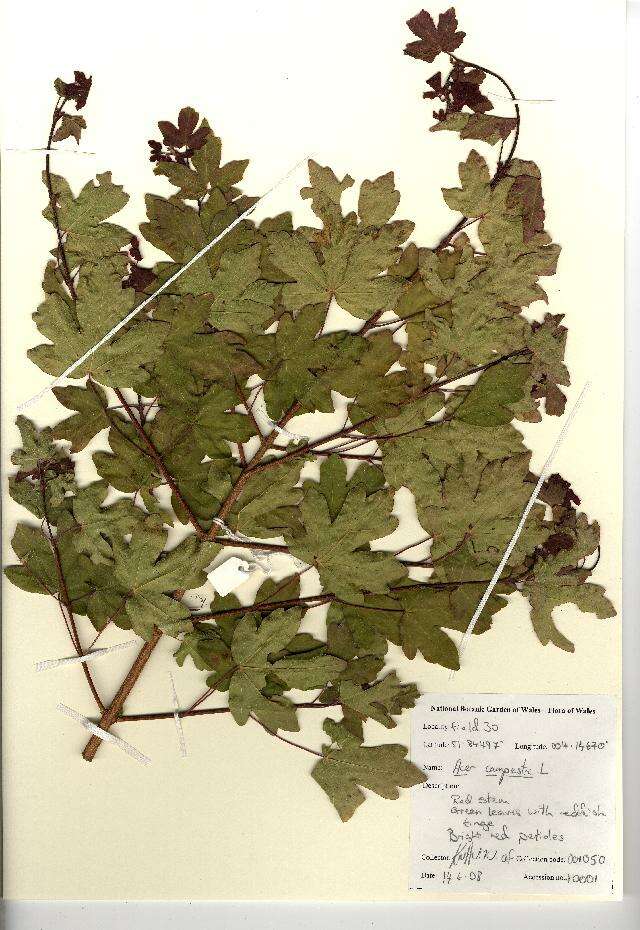 National Botanic Garden of Wales - Flora of Wales
Locality: Field 30
Latitude: 51.84497° Longitude: 004.14670°
Name: Acer campestre L
Description:
Red stem
Green leaves with reddish
tinge
Bright red petioles
Collector: of collection code: 001050
Date: 14.6.08 Accession no. 10001